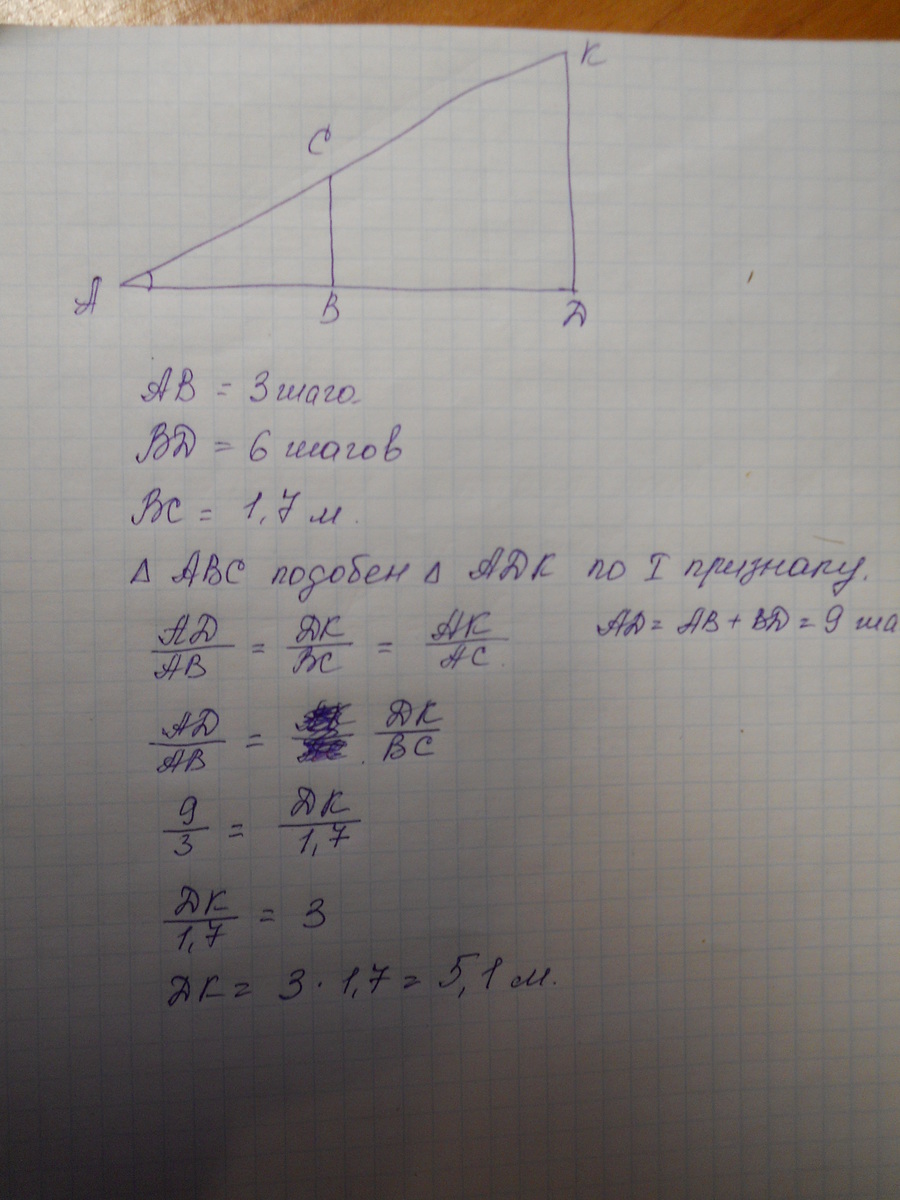 K
C
A
B
D
AB = 3 шага
BD = 6 шагов
BC = 1,7 м.
Δ ABC подобен Δ ADK по I признаку.
AD/AB = DK/BC = AK/AC. AD = AB + BD = 9 ша
AD/AB = DK/BC
9/3 = DK/1,7
DK/1,7 = 3
DK = 3 · 1,7 = 5,1 м.